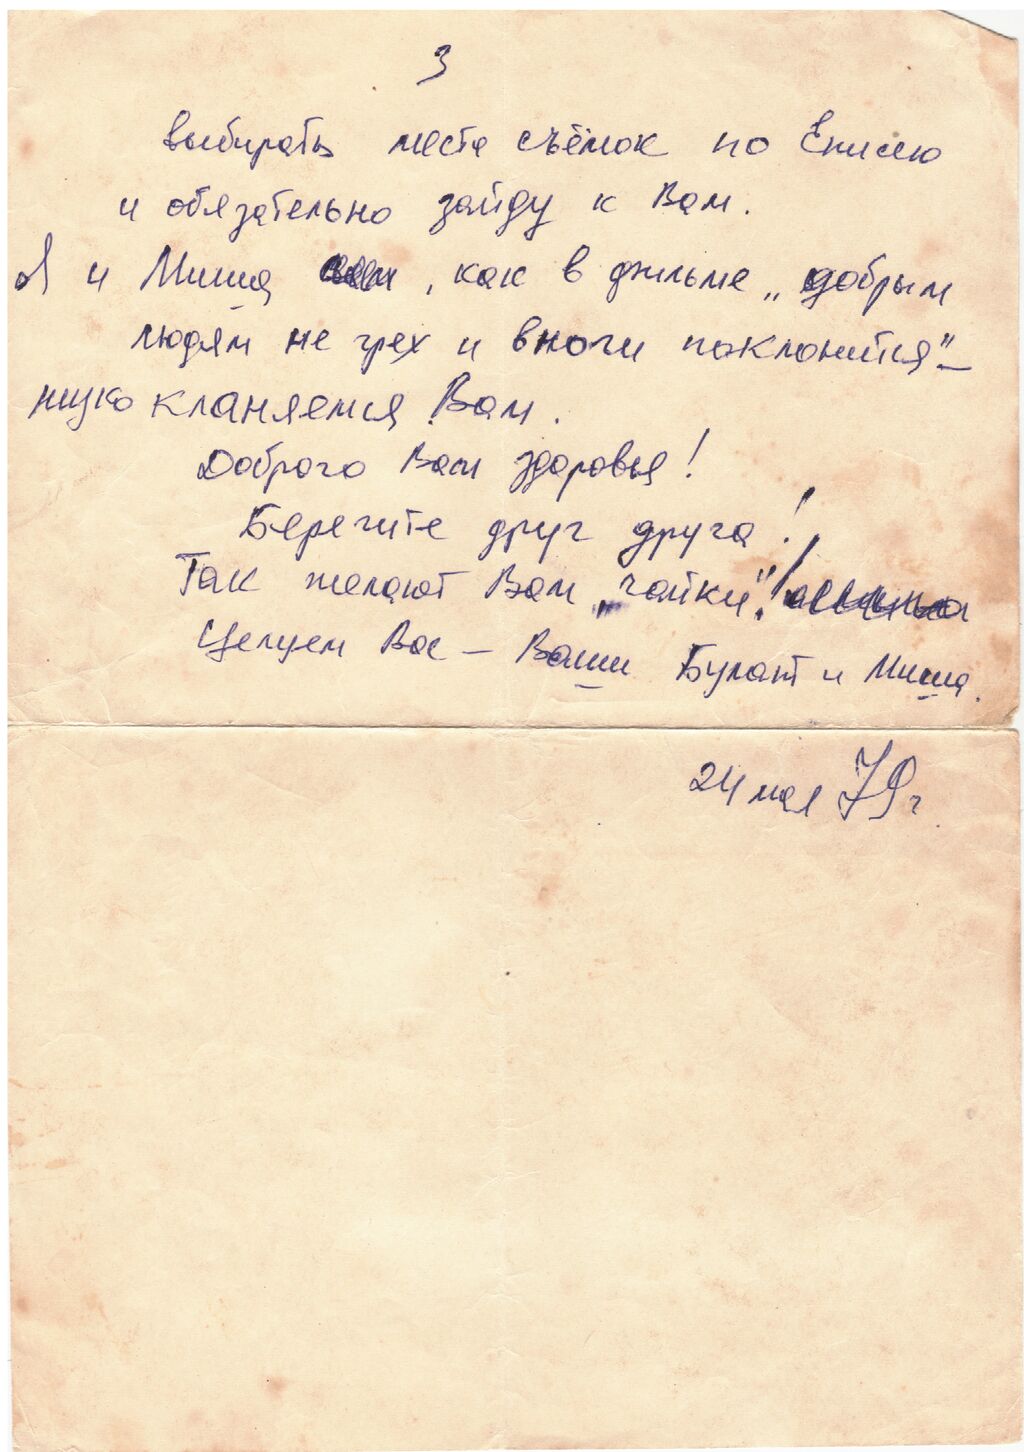 3
выбирать места съёмок по Енисею
и обязательно зайду к Вам.
Я и Миша , как в фильме „добрым
людям не грех и вноги поклонится"—
низко кланяемся Вам.
Доброго Вам здоровья!
Берегите друг друга!
Так желают Вам „чайки"!
Целуем Вас — Ваши Булат и Миша.
24 мая 79г.